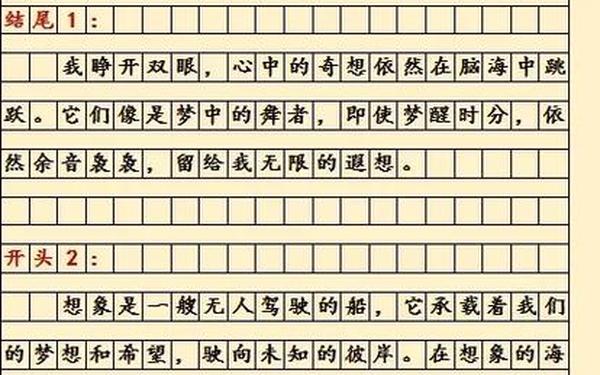 结尾1：
我睁开双眼，心中的奇想依然在脑海中跳
跃。它们像是梦中的舞者，即使梦醒时分，依
然余音袅袅，留给我无限的遐想。
开头2：
想象是一艘无人驾驶的船，它承载着我们
的梦想和希望，驶向未知的彼岸。在想象的海